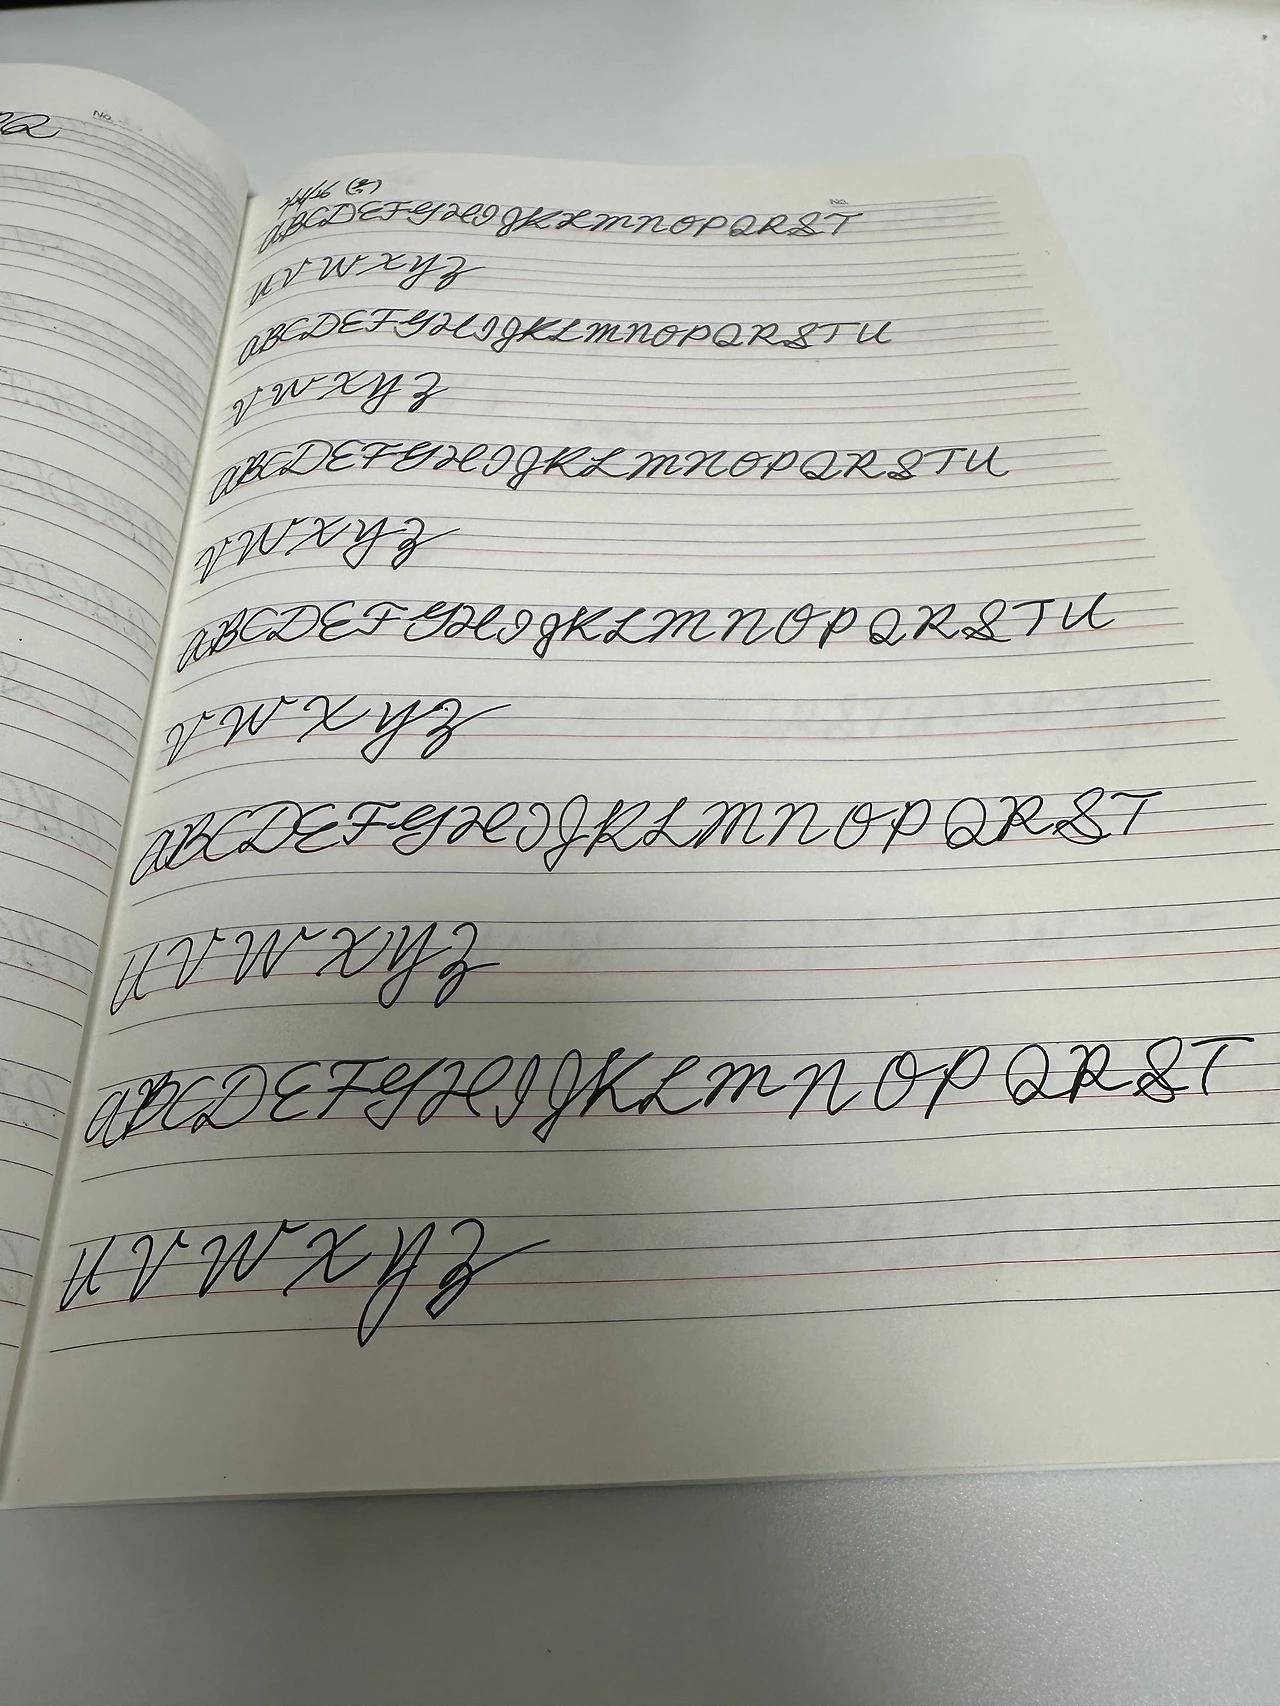 No.
No.
ABCDEFGHIJKLMNOPQRST
UVWXYZ
ABCDEFGHIJKLMNOPQRSTU
VWXYZ
ABCDEFGHIJKLMNOPQRSTU
VWXYZ
ABCDEFGHIJKLMNOPQRSTU
VWXYZ
ABCDEFGHIJKLMNOPQRST
UVWXYZ
ABCDEFGHIJKLMNOPQRST
UVWXYZ